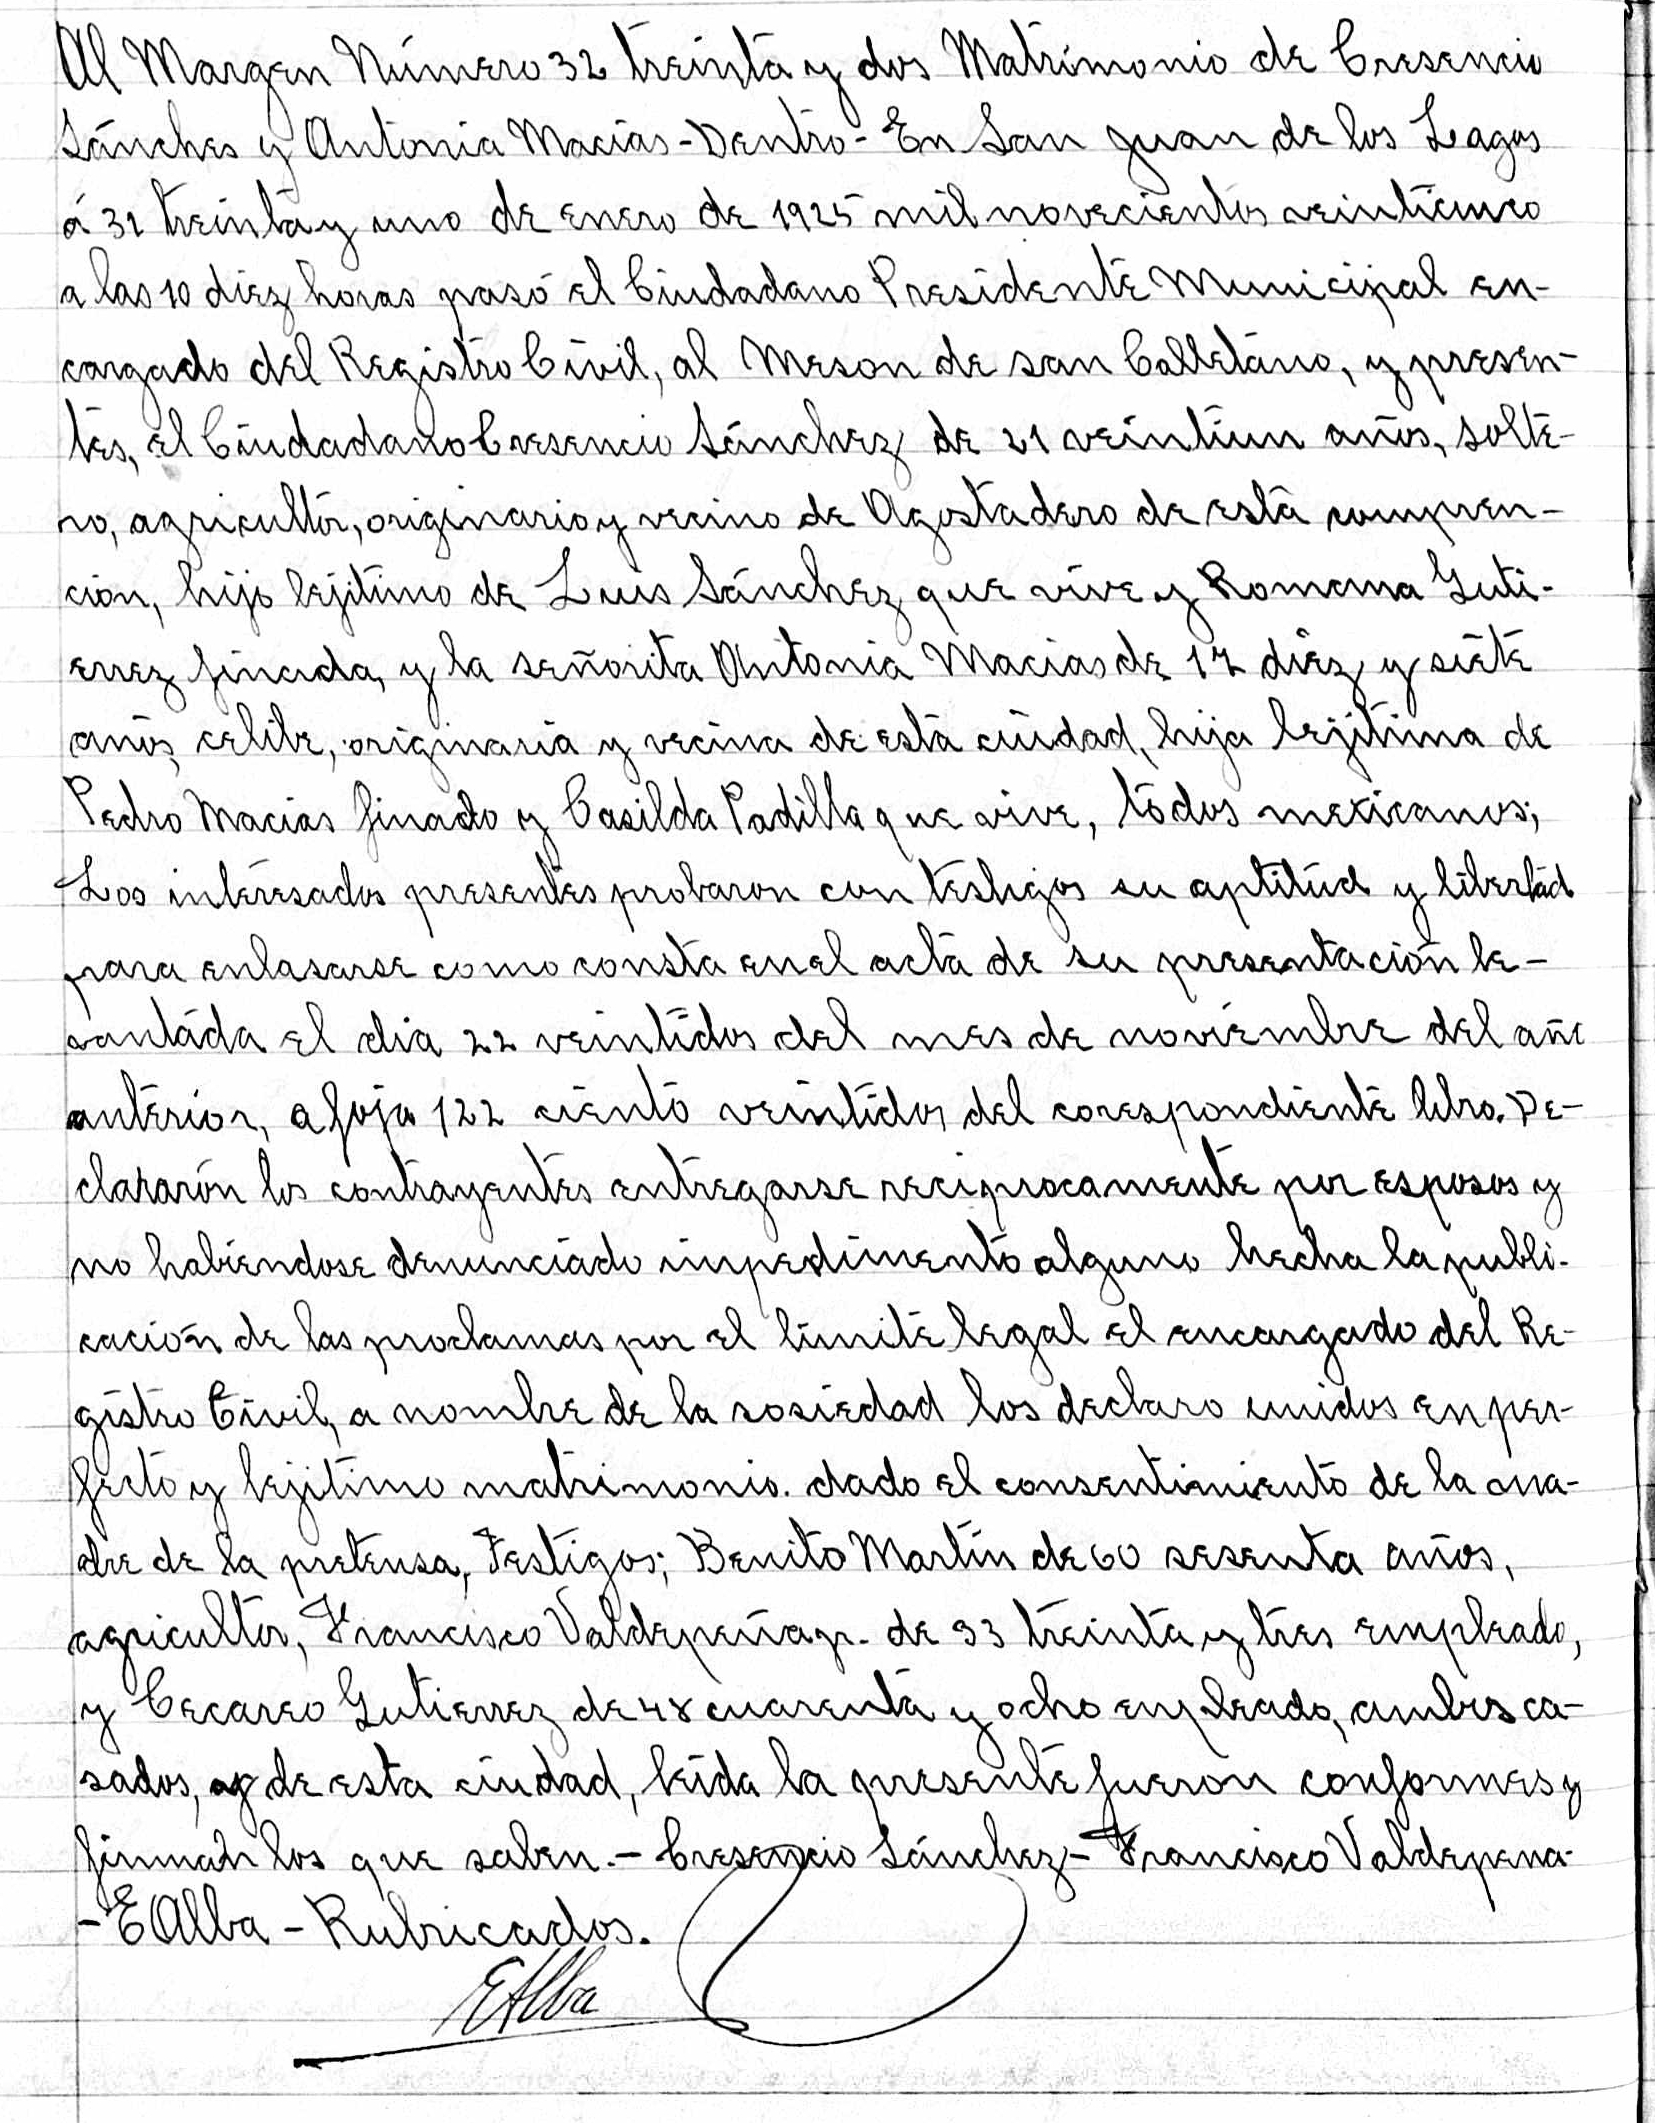 Al Margen Número 32 treinta y dos Matrimonio de Cresencio
Sánches y Antonia Macías - Dentro - En San Juan de los Lagos
á 31 treinta y uno de enero de 1925 mil novecientos veinticinco
a las 10 diez horas pasó el Ciudadano Presidente Municipal en-
cargado del Registro Civil, al Meson de san Calletano, y presen-
tes, el Ciudadano Cresencio Sánchez de 21 veintiun años, solte-
ro, agricultor, originario y vecino de Agostadero de esta compren-
cion, hijo lejitimo de Luis Sánchez que vive y Romana Guti-
errez finada, y la señorita Antonia Macias de 17 diez y siete
años, celibe, originaria y vecina de esta ciudad, hija lejitima de
Pedro Macias finado y Casilda Padilla que vive, todos mexicanos;
Los interesados presentes probaron con testigos su aptitud y libertad
para enlasarse como consta en el acta de su presentación le-
vantada el dia 22 veintidos del mes de noviembre del año
anterior, a foja 122 ciento veintidos del corespondiente libro. De-
clararón los contrayentes entregarse reciprocamente por esposos y
no habiendose denunciado impedimento alguno hecha la publi-
cación de las proclamas por el limite legal el encargado del Re-
gistro Civil, a nombre de la sosiedad los declaro unidos en per-
fecto y lejitimo matrimonio. dado el consentimiento de la ma-
dre de la pretensa, Testigos; Benito Martín de 60 sesenta años,
agricultor, Francisco Valdepeña jr. de 33 treinta y tres empleado,
y Cecareo Gutierrez de 48 cuarenta y ocho empleado, ambos ca-
sados, y de esta ciudad, leida la presente fueron conformes y
firmah los que saben. - Cresencio Sánchez - Francisco Valdepena-
- E Alba - Rubricados.
EAlba